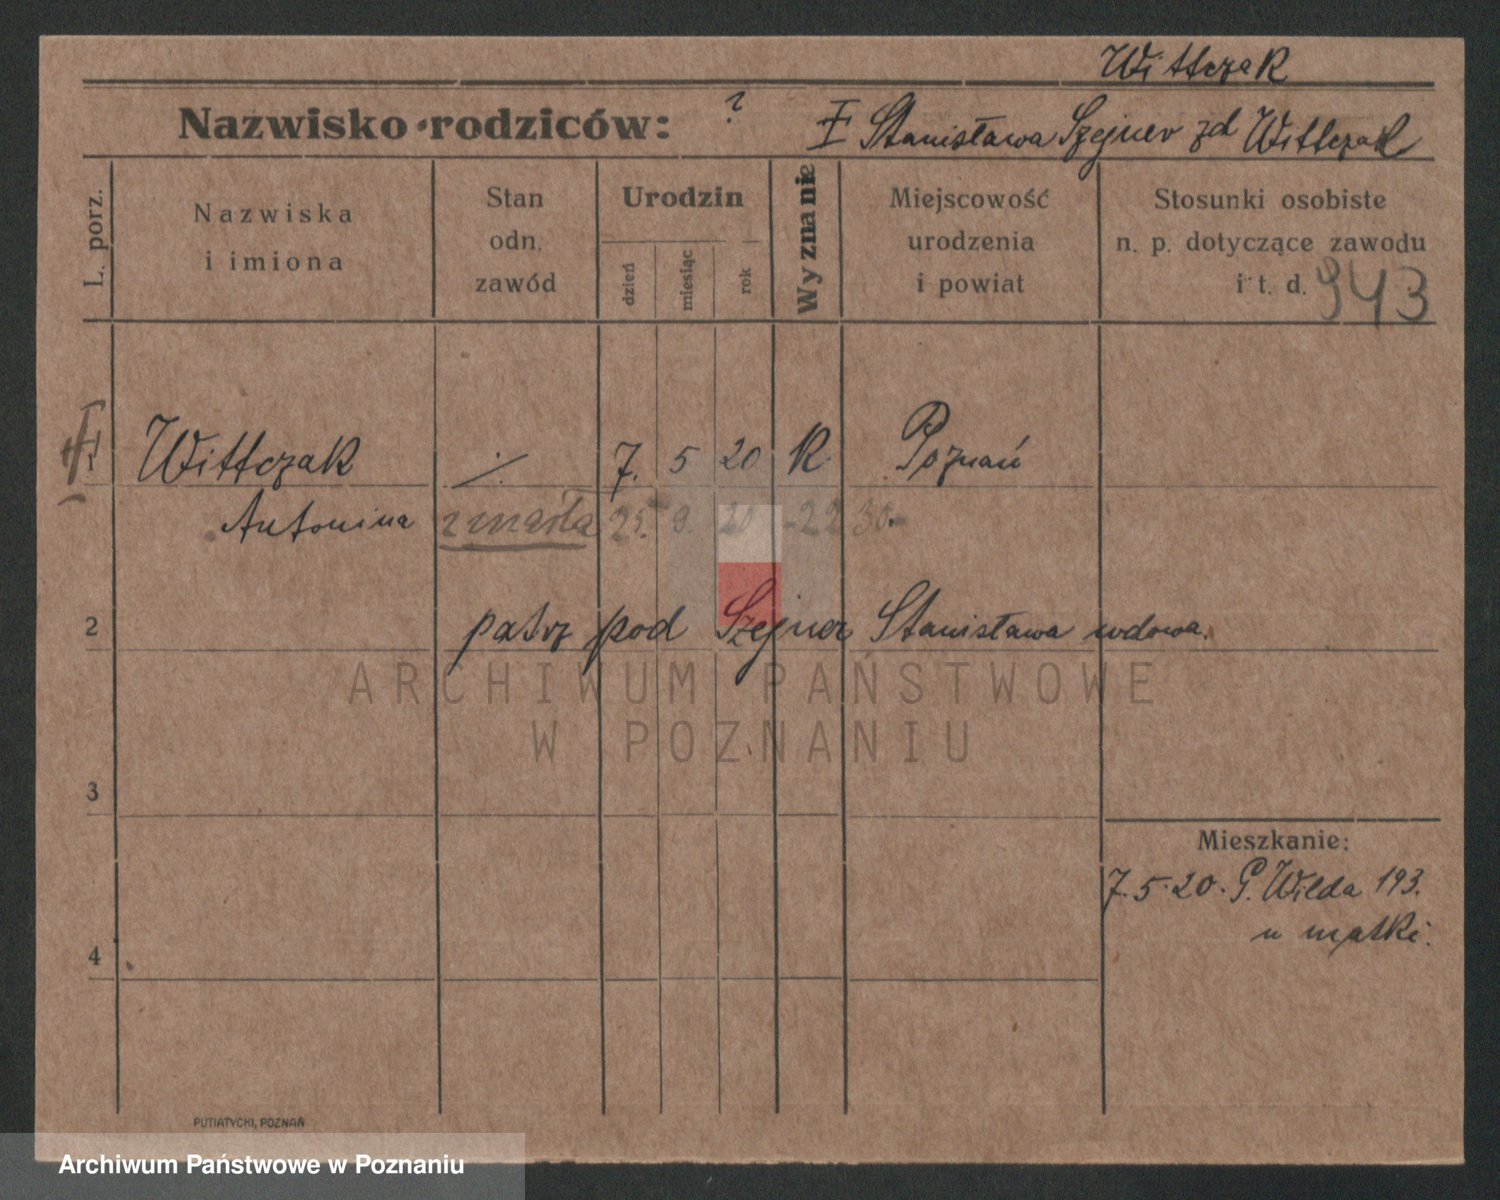 Wittczak
Nazwisko rodziców: ? I Stanisława Szejner zd Wittczak
L. porz.
Nazwiska
i imiona
Stan
odn.
zawód
Urodzin
dzień
miesiąc
rok
Wyznanie
Miejscowość
urodzenia
i powiat
Stosunki osobiste
n. p. dotyczące zawodu
i t. d. 943
1 Wittczak ./. 7. 5 20 K. Poznań
Antonina zmarła 25. 9. 20 -22 30.
2 patrz pod Szejner Stanisława wdowa.
ARCHIWUM PAŃSTWOWE
W POZNANIU
3
Mieszkanie:
7.5.20. G. Wilda 193.
u matki.
4
PUTIATYCKI, POZNAŃ
Archiwum Państwowe w Poznaniu